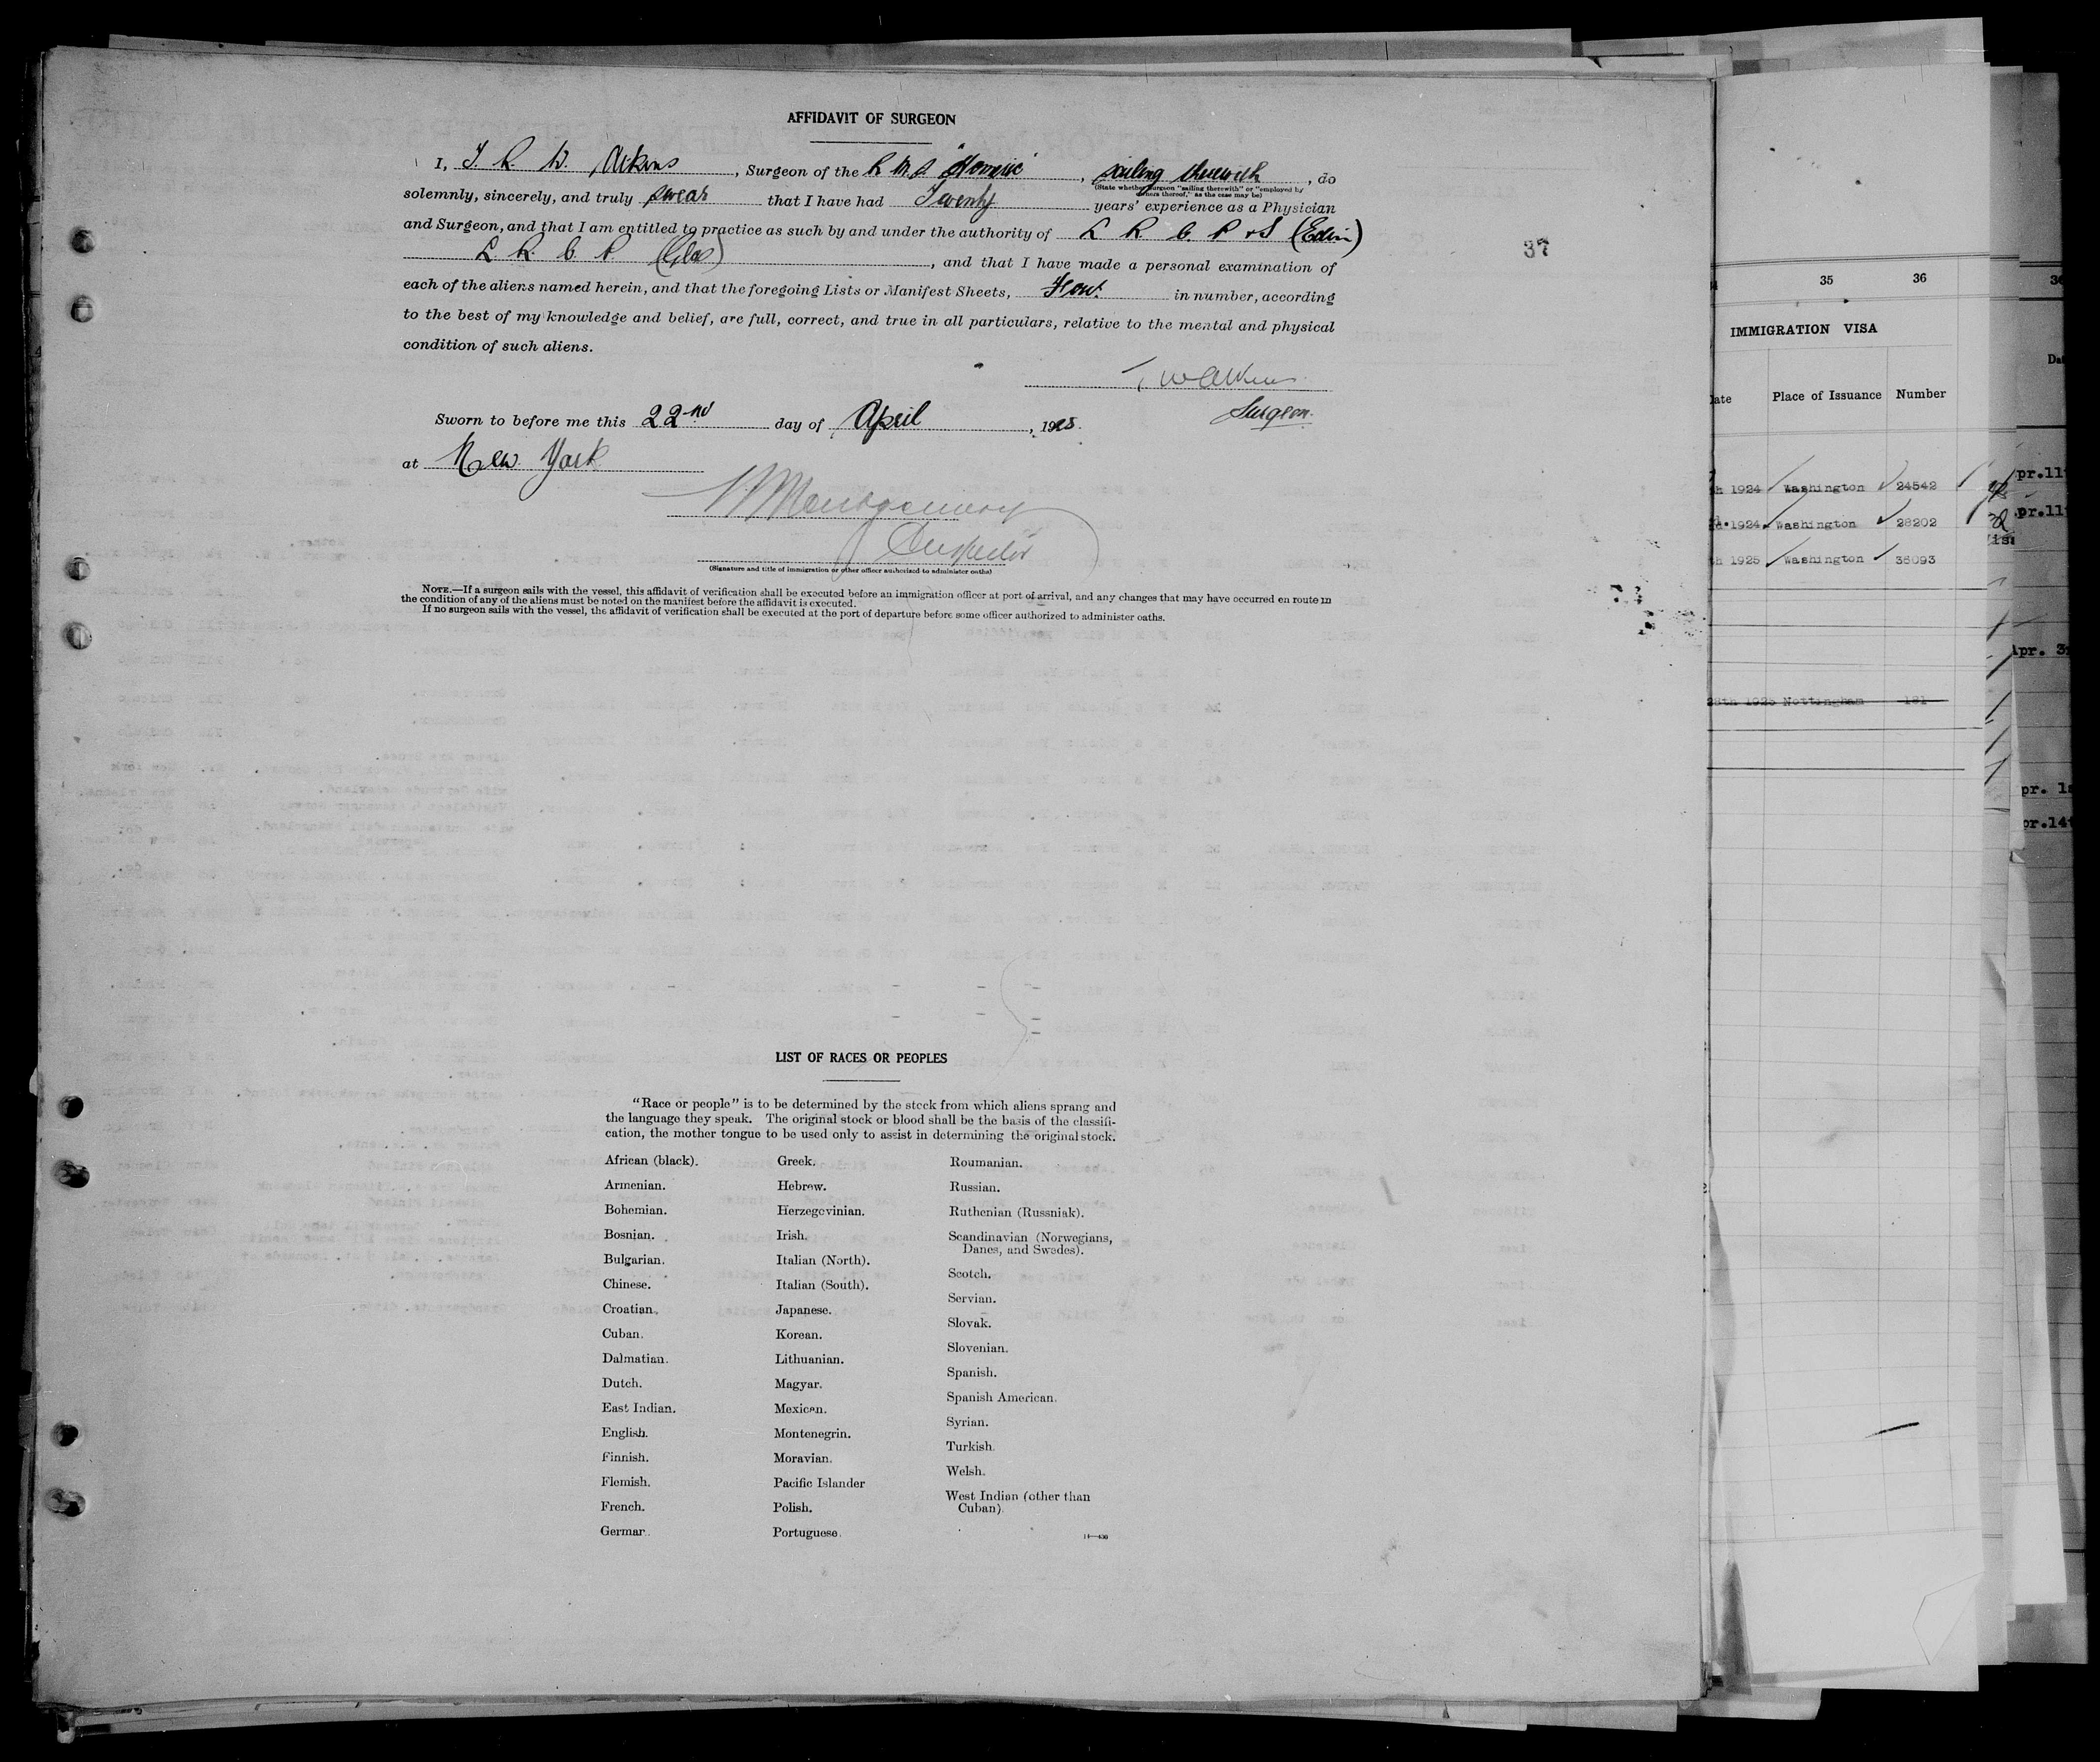 AFFIDAVIT OF SURGEON
I, T. R. W. Atkins, Surgeon of the R.M.S. "Homeric", sailing therewith, do
(State whether Surgeon "sailing therewith" or "employed by
owners thereof," as the case may be)
solemnly, sincerely, and truly swear that I have had Twenty years' experience as a Physician
and Surgeon, and that I am entitled to practice as such by and under the authority of L R. C. P & S (Edin)
L. R. C. P (Glas), and that I have made a personal examination of
each of the aliens named herein, and that the foregoing Lists or Manifest Sheets, Four in number, according
to the best of my knowledge and belief, are full, correct, and true in all particulars, relative to the mental and physical
condition of such aliens.
Atkins
Surgeon.
Sworn to before me this 22nd day of April, 1925.
at New York
Montgomery
Inspector
(Signature and title of immigration or other officer authorized to administer oaths)
NOTE.—If a surgeon sails with the vessel, this affidavit of verification shall be executed before an immigration officer at port of arrival, and any changes that may have occurred en route in
the condition of any of the aliens must be noted on the manifest before the affidavit is executed.
If no surgeon sails with the vessel, the affidavit of verification shall be executed at the port of departure before some officer authorized to administer oaths.
37
LIST OF RACES OR PEOPLES
"Race or people" is to be determined by the stock from which aliens sprang and
the language they speak. The original stock or blood shall be the basis of the classifi-
cation, the mother tongue to be used only to assist in determining the original stock.
African (black).
Armenian.
Bohemian.
Bosnian.
Bulgarian.
Chinese.
Croatian.
Cuban.
Dalmatian.
Dutch.
East Indian.
English.
Finnish.
Flemish.
French.
German.
Greek.
Hebrew.
Herzegovinian.
Irish.
Italian (North).
Italian (South).
Japanese.
Korean.
Lithuanian.
Magyar.
Mexican.
Montenegrin.
Moravian.
Pacific Islander
Polish.
Portuguese.
Roumanian.
Russian.
Ruthenian (Russniak).
Scandinavian (Norwegians,
Danes, and Swedes).
Scotch.
Servian.
Slovak.
Slovenian.
Spanish.
Spanish American.
Syrian.
Turkish.
Welsh.
West Indian (other than
Cuban).
35 36
IMMIGRATION VISA
Date Place of Issuance Number
th 1924 Washington 24542
1924 Washington 28202
th 1925 Washington 35093
28th 1925 Nottingham 181
pr.11
pr.11
Apr. 3
pr. 1s
pr.14t